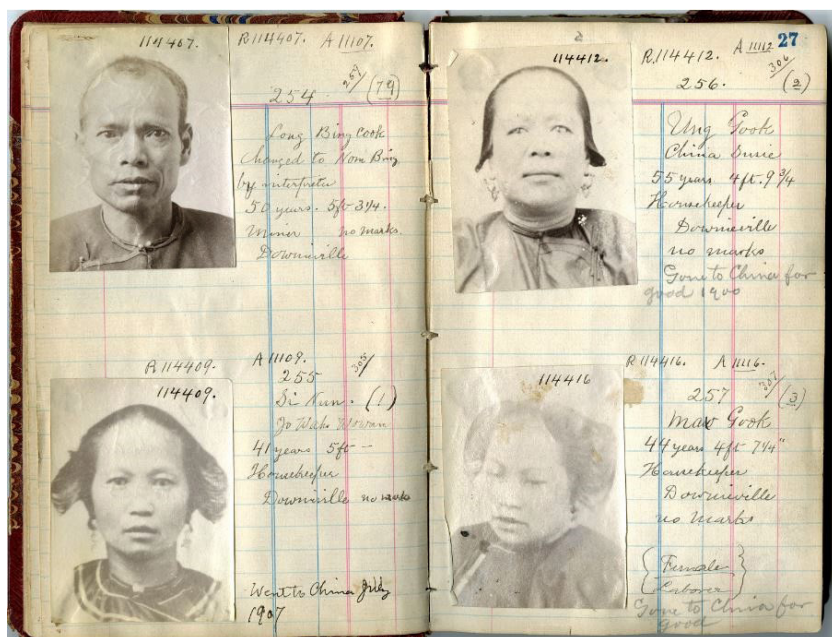 114407.
R114407. A 11107.
254 257/ (79)
Long Bing Cook
changed to Nom Bing
by interpreter
50 years. 5ft 3 1/4.
Miner no marks.
Downieville
R114409.
114409.
A 11109.
255 305/
(1)
41 years 5ft —
Housekeeper
Downieville no marks
Went to China July
1907
27
114412.
R.114412. A 11112
306/
256. (2)
Ung Gook
China Susie
55 years 4ft. 9 3/4
Housekeeper
Downieville
no marks
Gone to China for
good 1900
114416
R114416. A 11116.
257 307/ (3)
Gook
44 years 4ft 7 1/4"
Housekeeper
Downieville
no marks
{Female
Laborer}
Gone to China for
good